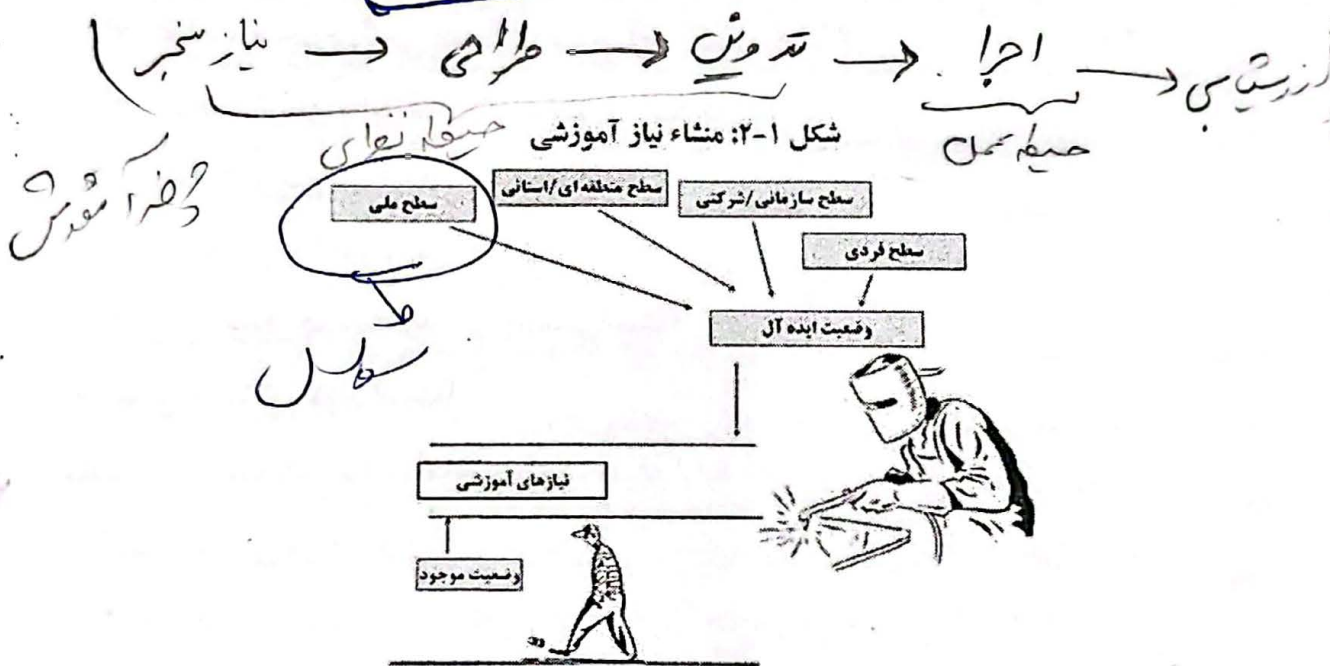 نیاز سنجی → طراحی → تدوین → اجرا → ارزشیابی
حیطه نظری
حیطه عمل
شکل ۱-۲: منشاء نیاز آموزشی
سطح ملی
سطح منطقه ای/استانی
سطح سازمانی/شرکتی
سطح فردی
وضعیت ایده آل
سوال
نیازهای آموزشی
وضعیت موجود